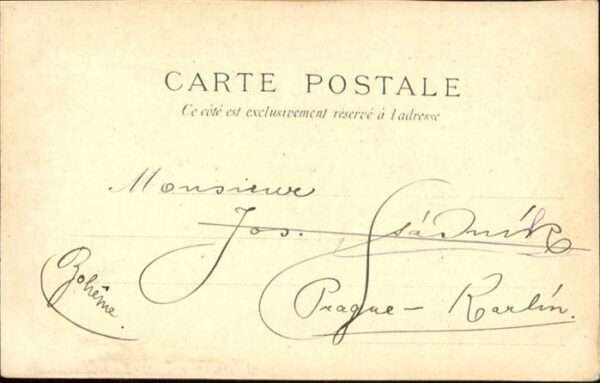 CARTE POSTALE
Ce côté est exclusivement réservé à l'adresse
Monsieur
Jos.
Prague – Karlín.
Bohême.